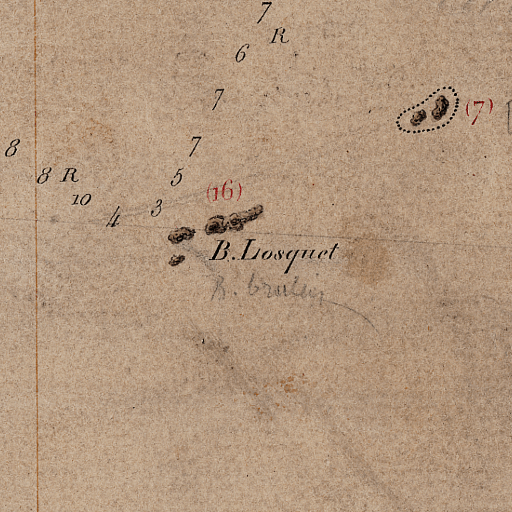 7
R
6
7
(7)
7
8
8 R
5
10
(16)
4
3
B. Losquet
B.